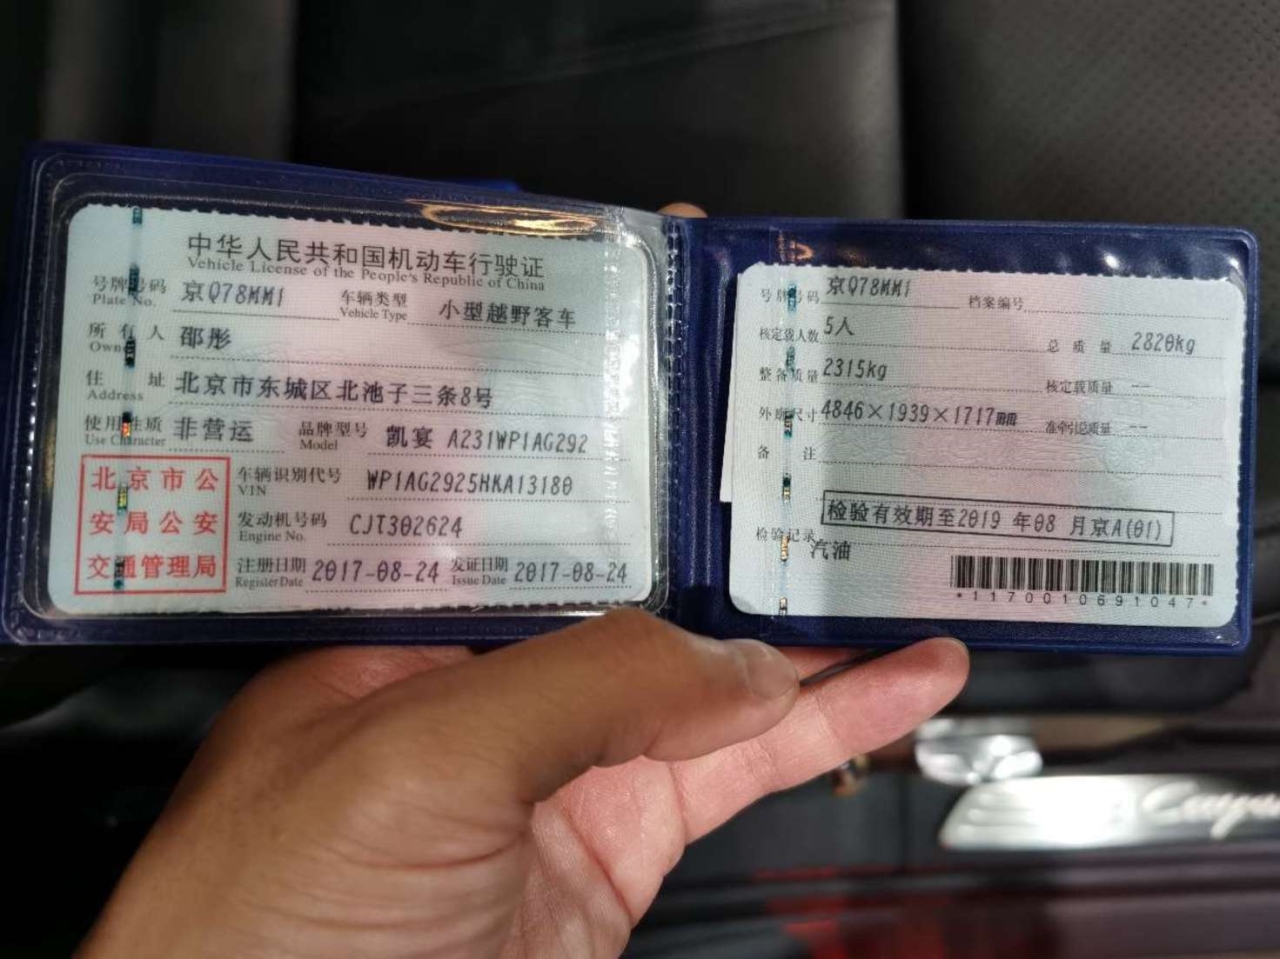 中华人民共和国机动车行驶证
Vehicle License of the People's Republic of China
号牌号码 京Q78MM1 车辆类型 小型越野客车
Plate No. Vehicle Type
所有人 邵彤
Owner
住址 北京市东城区北池子三条8号
Address
使用性质 非营运 品牌型号 凯宴 A231WP1AG292
Use Character Model
北京市公
安局公安
交通管理局
车辆识别代号 WP1AG2925HKA13180
VIN
发动机号码 CJT302624
Engine No.
注册日期 2017-08-24 发证日期 2017-08-24
Register Date Issue Date
号牌号码 京Q78MM1 档案编号
核定载人数 5人 总质量 2820kg
整备质量 2315kg 核定载质量 --
外廓尺寸 4846×1939×1717mm 准牵引总质量 --
备注
检验有效期至2019 年08 月京A(01)
检验记录
汽油
*1170010691047*